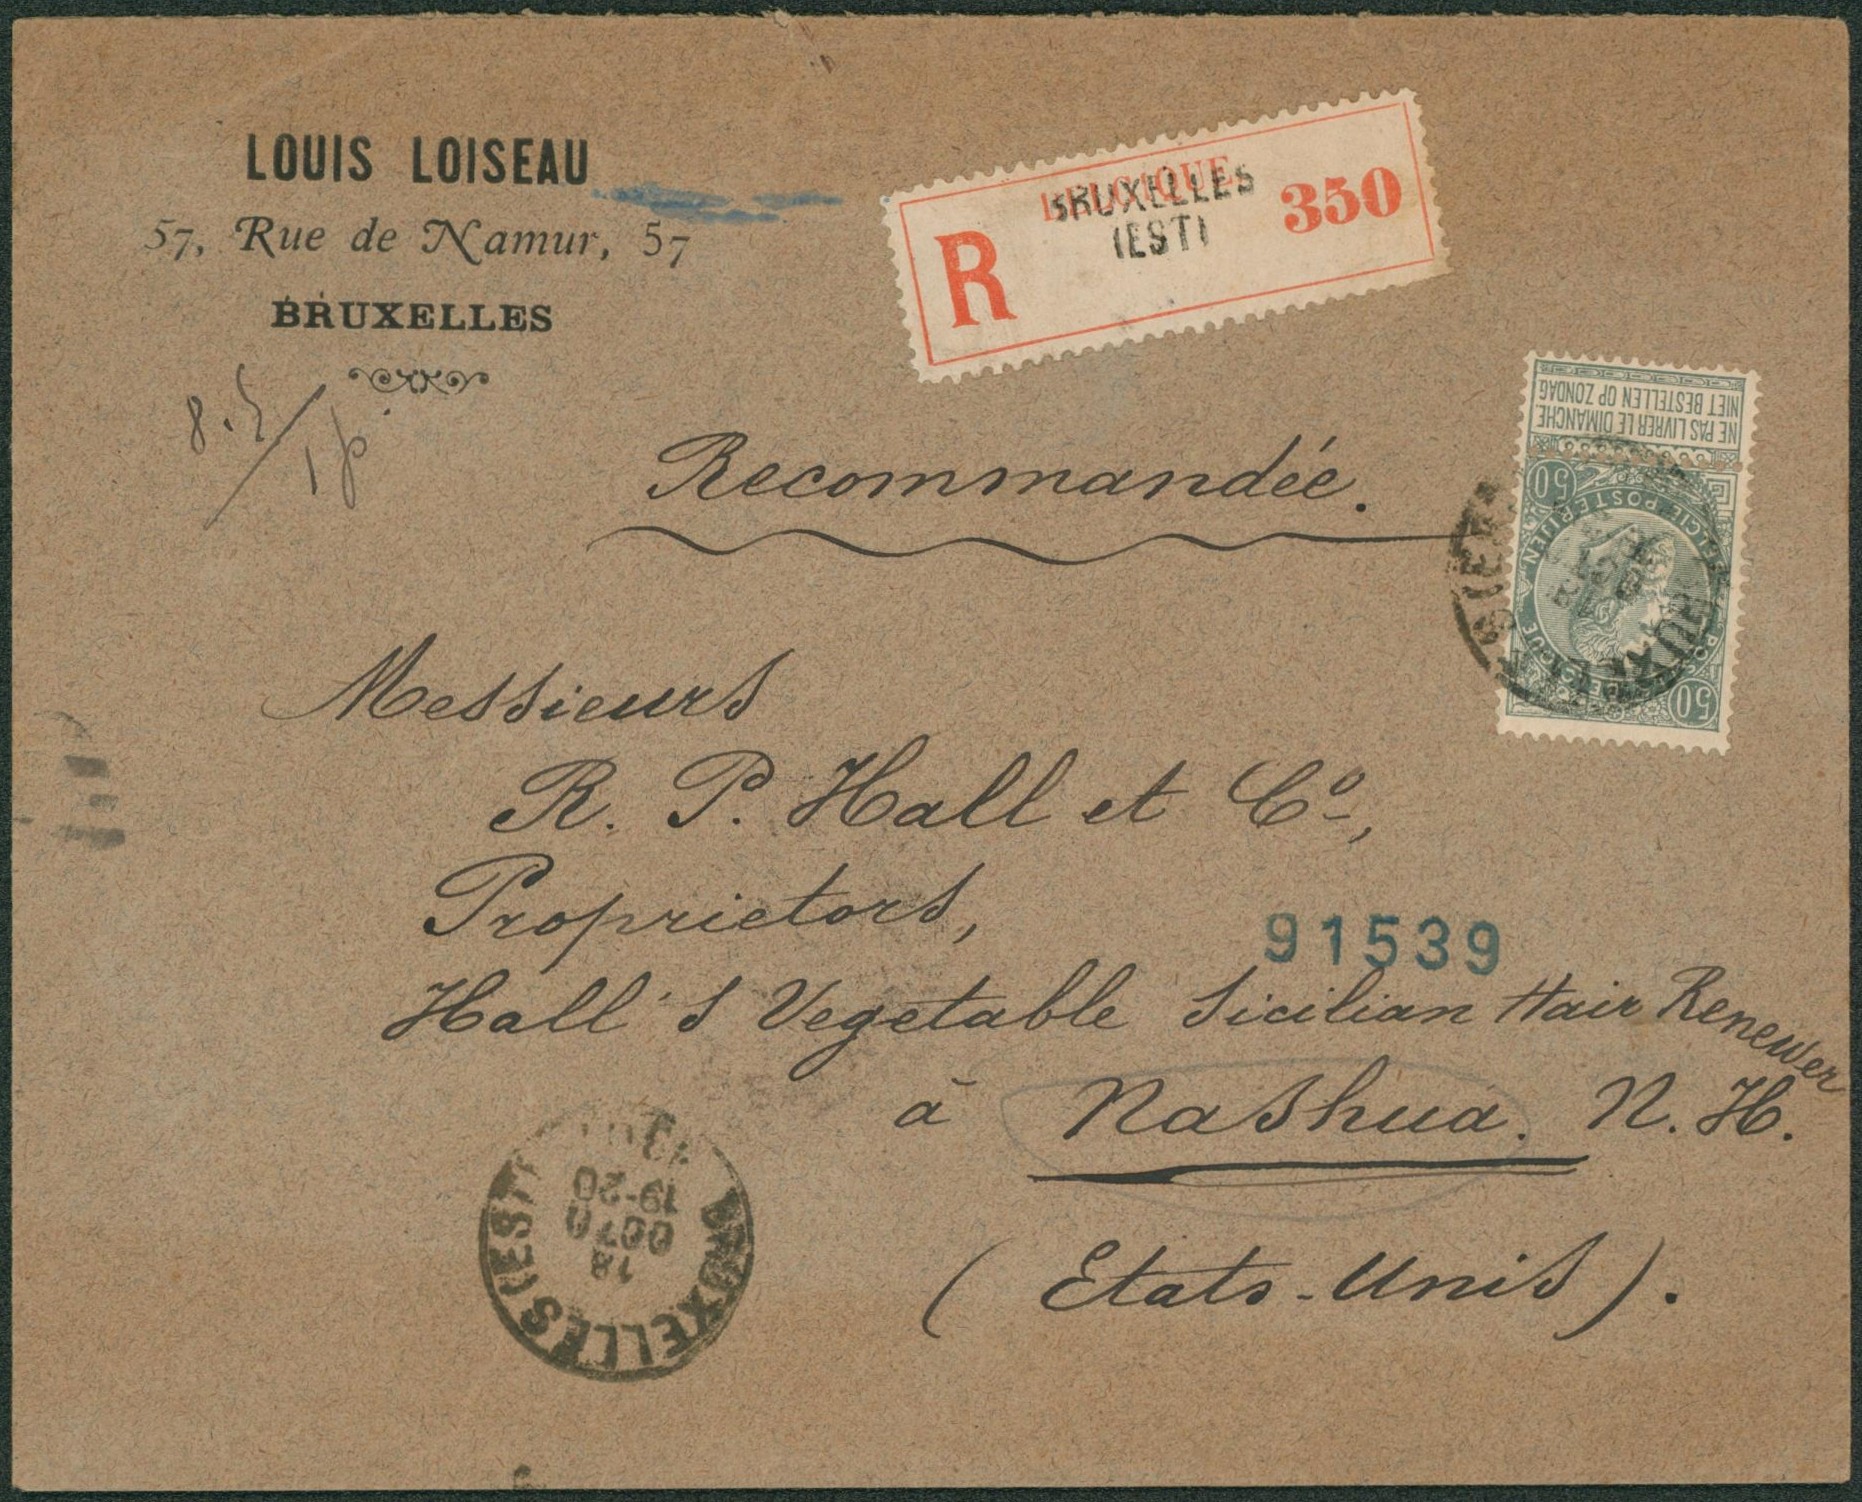 LOUIS LOISEAU
57, Rue de Namur, 57
BRUXELLES
BELGIQUE
BRUXELLES
(EST)
R
350
8.5/
NE PAS LIVRER LE DIMANCHE
NIET BESTELLEN OP ZONDAG
50
50
Recommandée.
Messieurs
R. P. Hall et Cº,
Proprietors,
91539
Hall's Vegetable Sicilian Hair Renewer
à Nashua. N. H.
(Etats-Unis).
BRUXELLES (EST)
18
OCTO
19-20